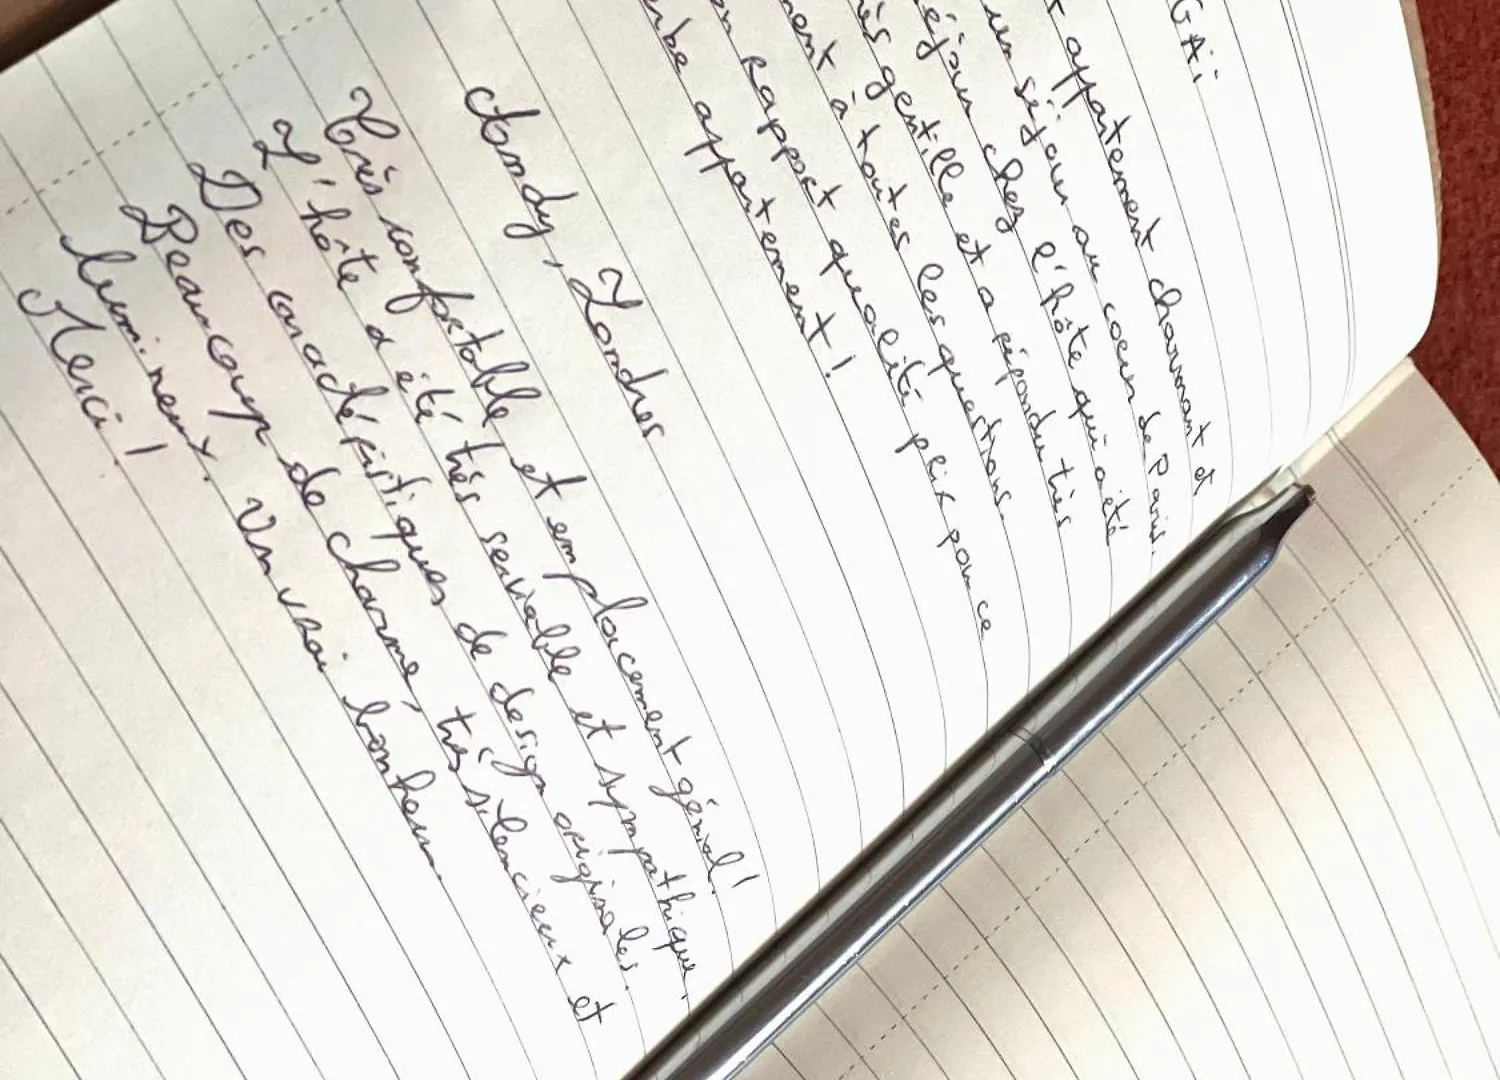 GAï
appartement charmant et
un séjour au coeur de Paris.
séjour chez l'hôte qui a été
gentille et a répondu très
à toutes les questions.
rapport qualité prix pour ce
appartement !
Andy, Londres
Très confortable et emplacement génial !
L'hôte a été très serviable et sympathique.
Des caractéristiques de design originales.
Beaucoup de charme, très silencieux et
lumineux. Un vrai bonheur.
Merci !